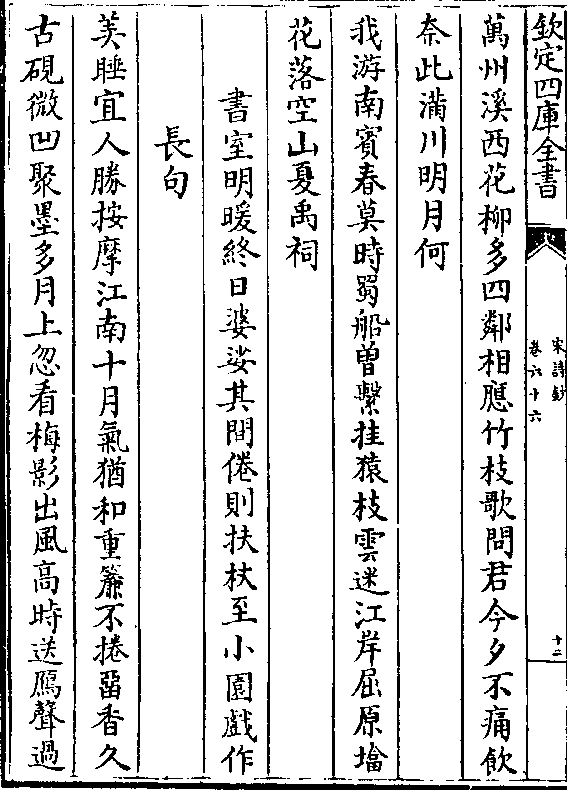 欽定四庫全書
宋詩鈔
卷六十六
十二
萬州溪西花柳多四鄰相應竹枝歌問君今夕不痛飲
奈此滿川明月何
我游南賓春莫時蜀船曽繫挂猿枝雲迷江岸屈原塔
花落空山夏禹祠
書室明暖終日婆娑其間倦則扶杖至小園戲作
長句
美睡宜人勝按摩江南十月氣猶和重簾不捲留香久
古硯微凹聚墨多月上忽看梅影出風高時送鴈聲過